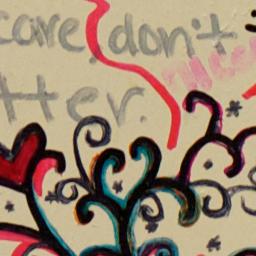 care, don't
tter.